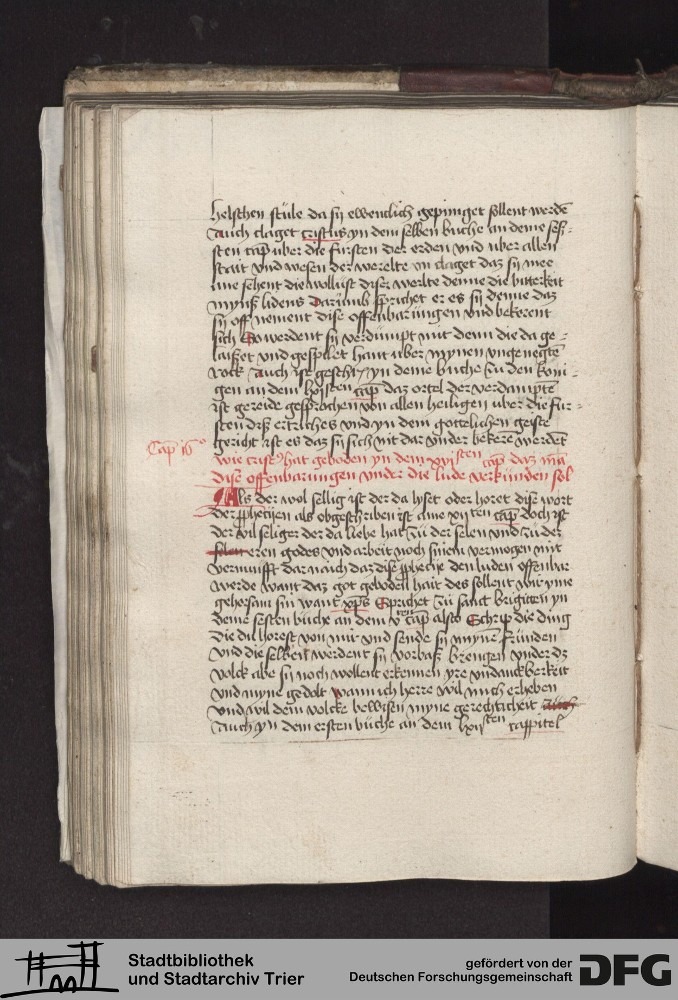 helschen stüle da sij ewenclich gepiniget sollent werdē
Auch claget cristus yn dem selben buche an deme sehs-
sten cap uber die fursten der erden vnd uber allen
stait vnd wesen der werelte vn claget daz sij mee
ane sehent die wollust diser werlte denne die bitterkeit
mynß lidens Darumb sprichet er es sij denne daz
sij off nement dise offenbarungen vnd bekerent
sich So werdent sij verdümpt mit denn die da ge-
laißet vnd gespilet hant uber mynen vngenegtē
rock Auch ist geschr yn deme buche zu den koni-
gen an dem hosten cap daz ortel der verdamptē
ist gereide gesprochen von allen heiligen uber die fur-
sten diß ertriches vnd yn dem gottlichen geiste
gericht ist es daz sij sich nit dar vnder bekere werdēt
Cap 16°
wie crist9 hat geboden yn dem xvi sten cap daz mā
dise offenbarungen vnder die lude verkunden sol
Als der wol sellig ist der da lyset oder horet dise wort
der pphecijen als obgeschriben ist ame xij ten cap doch ist
der vil seliger der da liebe hat zu der selen vnd zu der
selen eren godes vnd arbeit noch sinem vermogen mit
vernunfft dar nach daz dise pphecije den luden offenbar
werde want daz got geboden hait des sollent wir yme
gehorsam sin want xps Sprichet zu sant brigitten yn
deme sesten buche an dem v ten cap also Schrip die ding
die du horest von mir vnd sende sij mynē frunden
vnd die selben werdent sij vorbaß brengen vnder dz
volck abe sij noch wollent erkennen yre vndanckberkeit
vnd myne gedolt wann ich herre wil mich erheben
vnd wil dem volcke bewisen myne gerechtickeit auch
Auch yn dem ersten büche an dem lxij sten cappitel
Stadtbibliothek
und Stadtarchiv Trier
gefördert von der
Deutschen Forschungsgemeinschaft
DFG